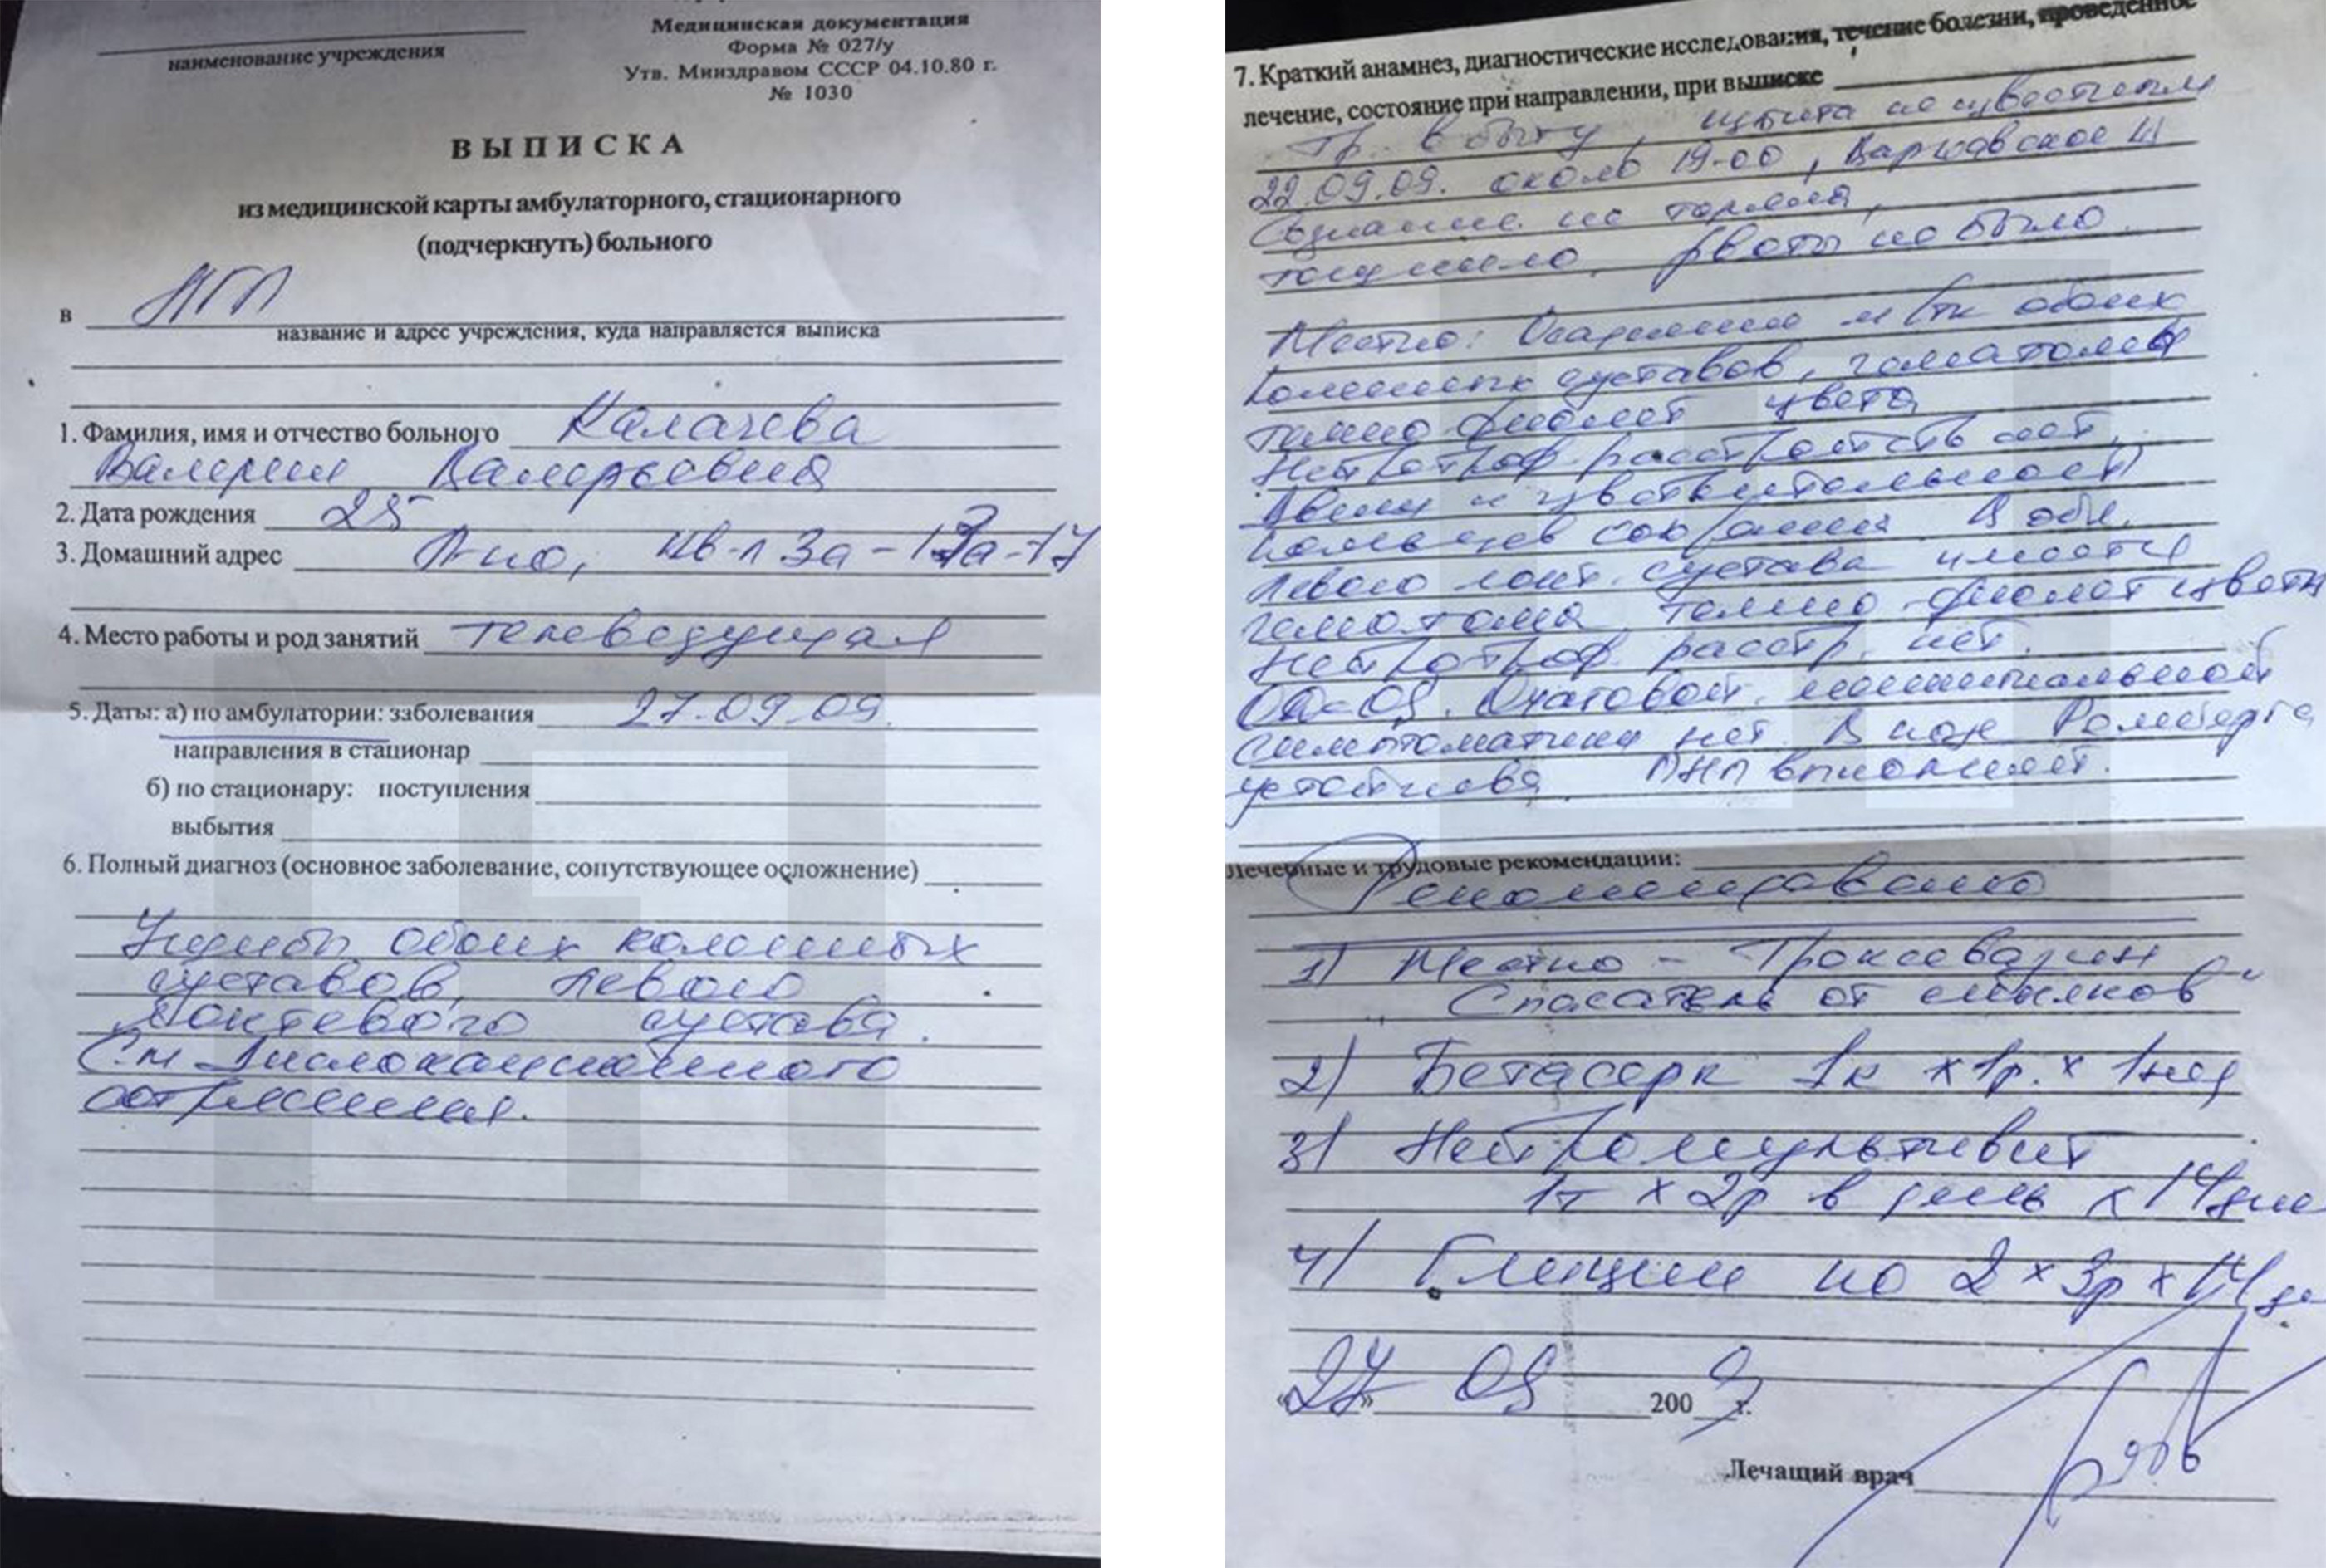 наименование учреждения
Медицинская документация
Форма № 027/у
Утв. Минздравом СССР 04.10.80 г.
№ 1030
ВЫПИСКА
из медицинской карты амбулаторного, стационарного
(подчеркнуть) больного
в
название и адрес учреждения, куда направляется выписка
1. Фамилия, имя и отчество больного Калачева
Валерия Валерьевна
2. Дата рождения 25
3. Домашний адрес
4. Место работы и род занятий телеведущая
5. Даты: а) по амбулатории: заболевания 27.09.09.
направления в стационар
б) по стационару: поступления
выбытия
6. Полный диагноз (основное заболевание, сопутствующее осложнение)
Ушибы обоих коленных
суставов, левого
локтевого сустава.
С-м дислокационного
7. Краткий анамнез, диагностические исследования, течение болезни, проведенное
лечение, состояние при направлении, при выписке
Тр. в быту, избита неизвестным
22.09.09. около 19-00, Варшавское ш
Сознание не теряла,
тошнило, рвоты не было.
Местно: Осаднения м/тк обоих
коленных суставов, гематомы
темно-фиолет цвета
Нейротроф. расстройств нет,
Движ и чувствительность
пальцев сохранены. В обл.
левого локт. сустава имеется
гематома темно-фиолет цвета
Нейротроф. расстр. нет.
Очаговой, менингиальной
симптоматики нет. В позе Ромберга
устойчива. ПНП выполняет.
Лечебные и трудовые рекомендации:
Рекомендовано
1) Местно - Троксевазин
"Спасатель от синяков"
2) Бетасерк 1к х 1р. х 1нед
3) Нейромультивит
1т х 2р в день х 14дне
4) Глицин по 2 х 3р х 14 д
«27» 09 2009 г.
Лечащий врач